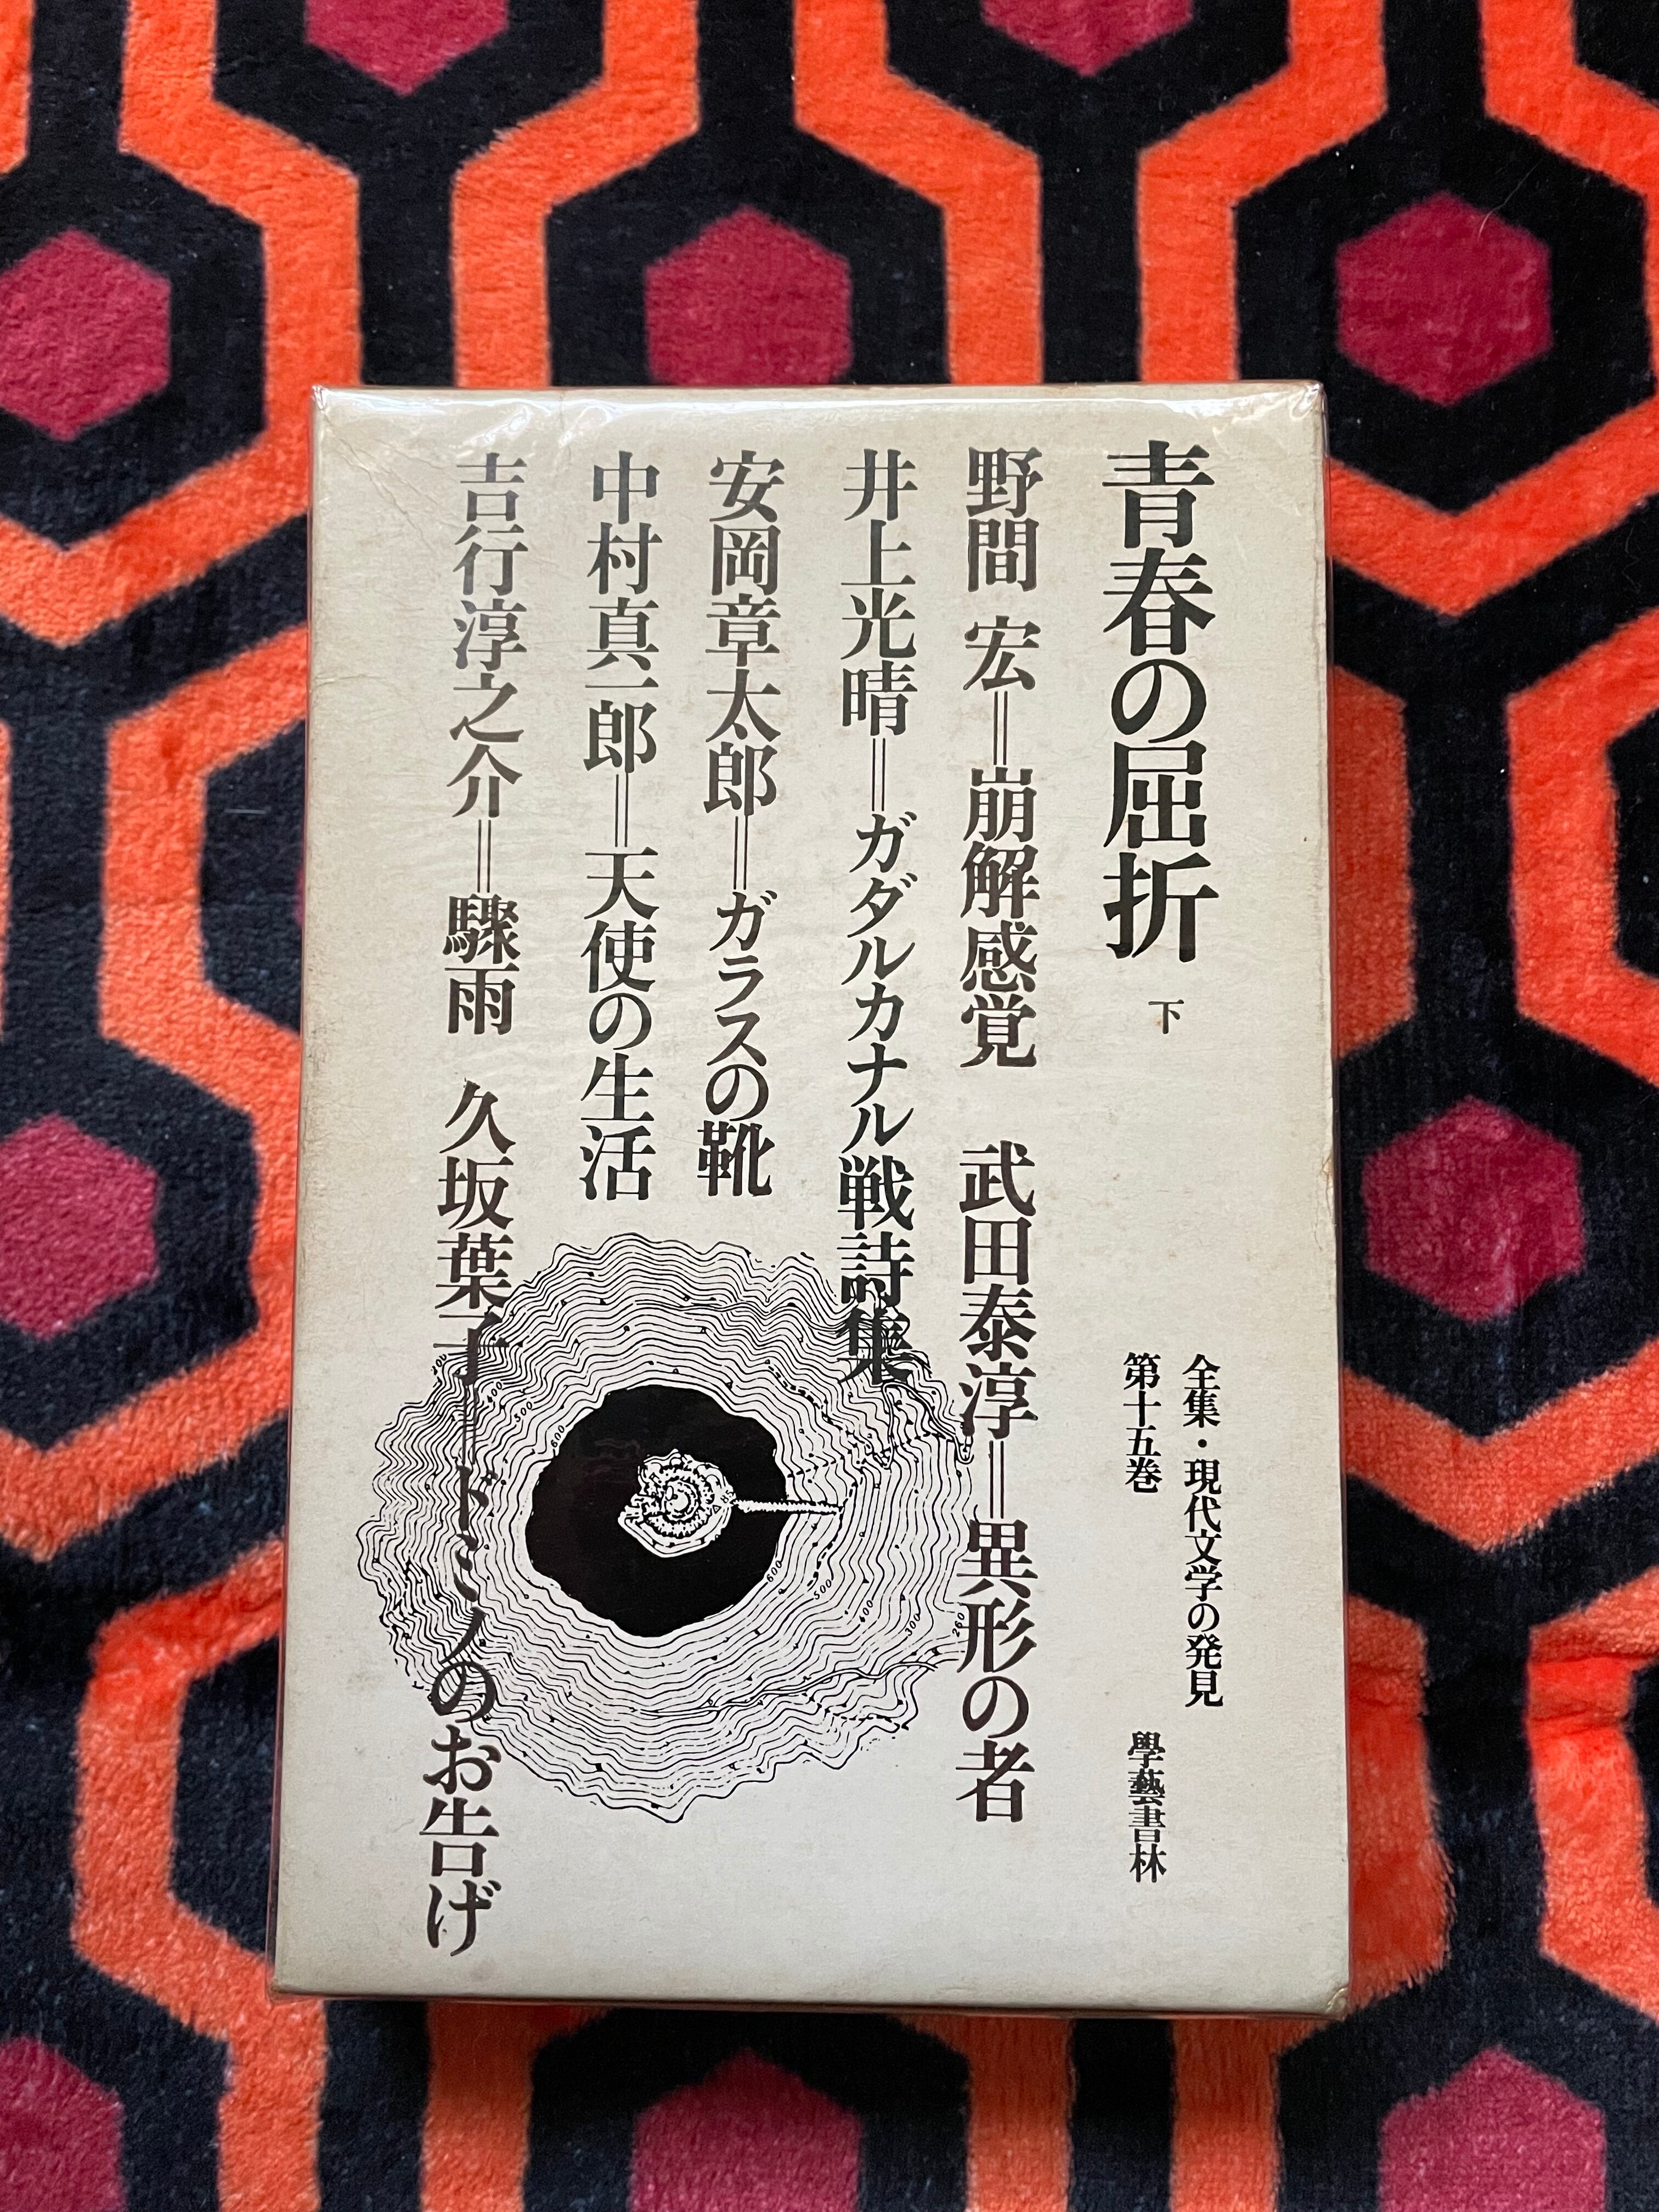 青春の屈折 下
全集・現代文学の発見
第十五巻
學藝書林
野間 宏＝崩解感覚 武田泰淳＝異形の者
井上光晴＝ガダルカナル戦詩集
安岡章太郎＝ガラスの靴
中村真一郎＝天使の生活
吉行淳之介＝驟雨 久坂葉子＝ドミノのお告げ
600
500
300
600
500
400
300
260